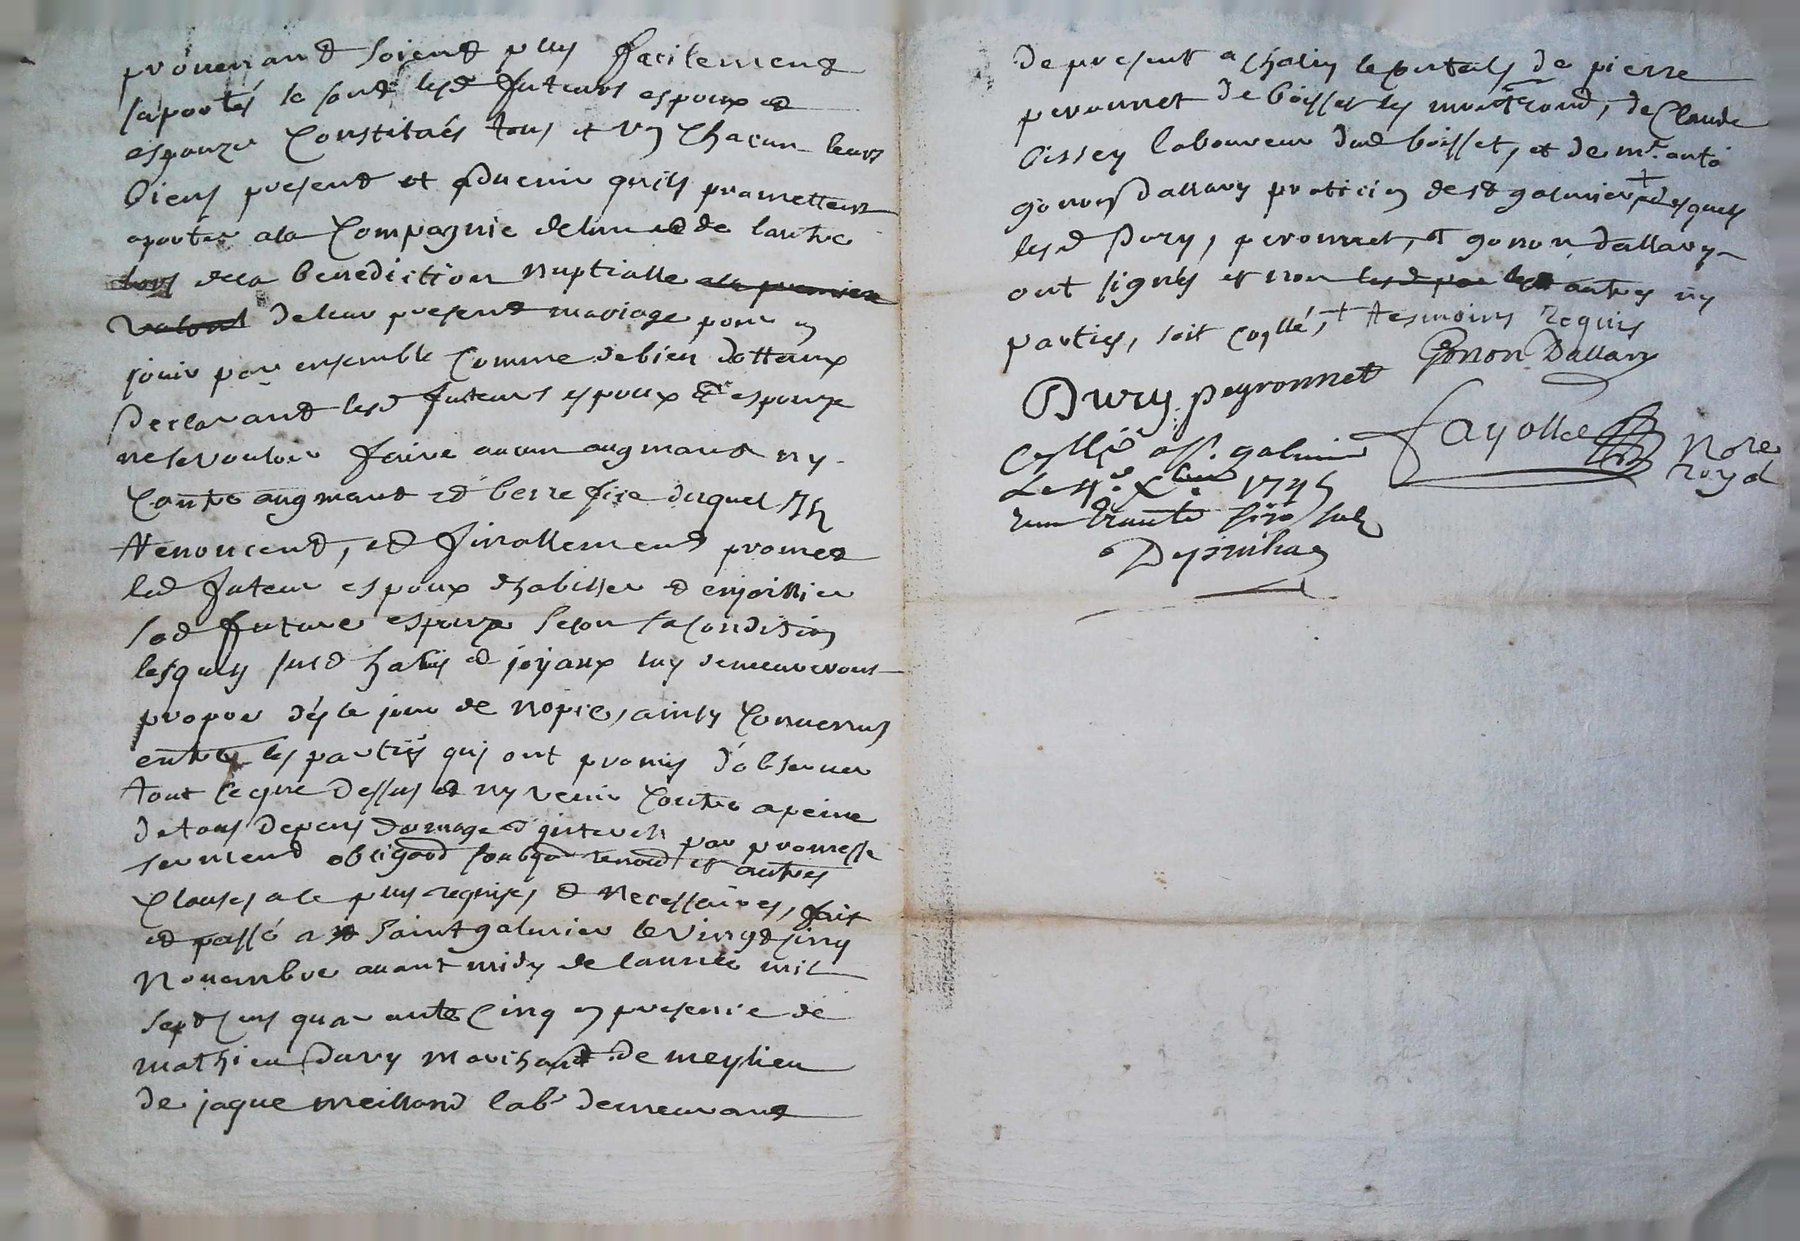 provenant soient plus facilement
suportés se sont lesd futurs espoux et
espouze constitués tous et un chacun leurs
biens present et advenir quils promettent
aporter a la compagnie delun et de lautre
lors de la benediction nuptialle a la premiere
de leur present mariage pour en
jouir par ensemble comme de bien dottaux
declarant lesd futeurs espoux et espouze
ne se vouloir faire aucun augmant ny
contre augmant et berrefise duquel ils
renoncent, et finallement promet
led futeur espoux dhabiller et enjoillier
sad future espouze selon sa condition
lesquels susd habis et joyaux luy demeureront
propre dés le jour de nopce, ainsy convenus
entre les partiés qui ont promis d'observer
tout ce que dessus et ny venir contre a peine
de tous depens domage et interets par promesse
serment obligaõn soubzõn renõn et autres
clauses a le plus requises et necessaires, fait
et passé a st saint galmier le vingt cinq
novembre avant midy de lannée mil
sept cens quarante cinq en presence de
mathieu Dury marchant de meylieu
de jaque meilland labr demeurant
de present a chalin le contals de pierre
peronnet de boisset les montrond, de Claude
bissey laboureur dud boisset, et de mr. anto
gonon Dallary praticien de st galmier + desquels
lesd Dury, peronnet, et gonon dallary
ont signés et non les autres ny
parties, soit coñllé, + tesmoins requis
Dury peyronnet Gonon Dallary
Fayolle Nore
royal
Coñllé a st. galmier
Le 4e. Xbre 1745
reçu trante six sols
Desjoinhas